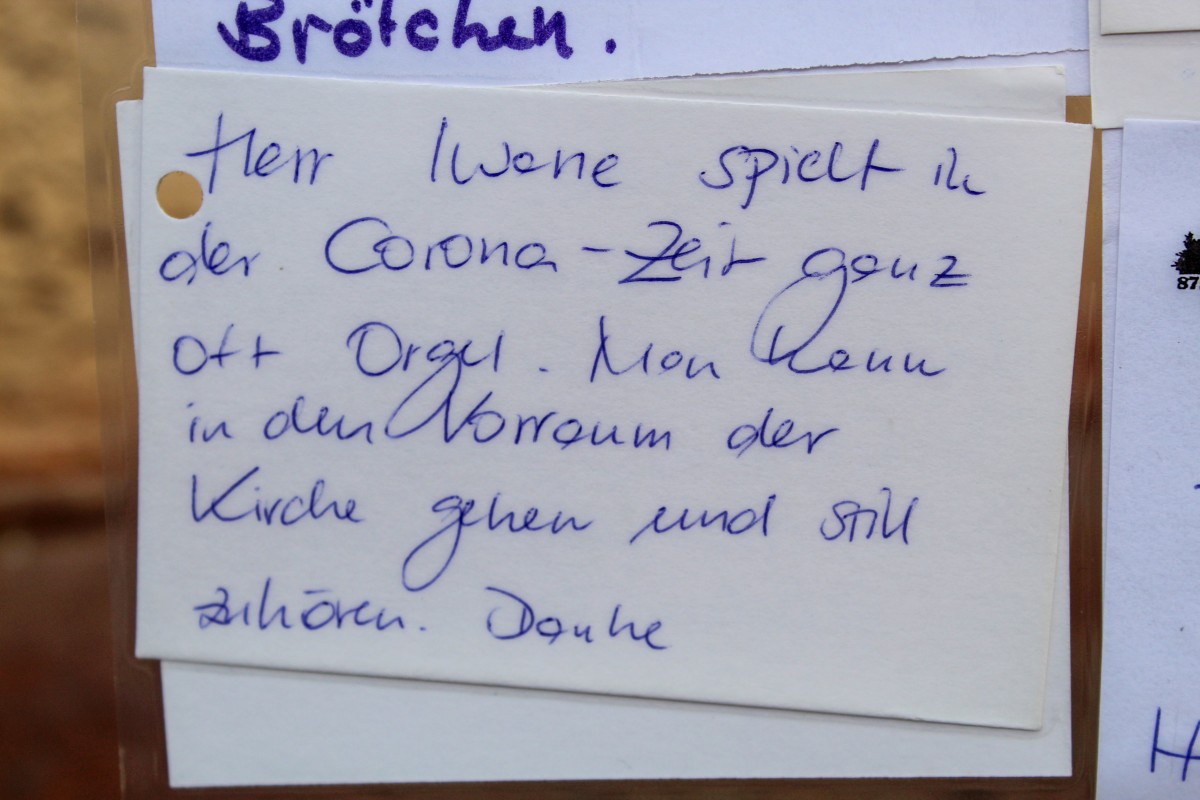 Brötchen.
Herr Iwane spielt in
der Corona-Zeit ganz
oft Orgel. Man kann
in den Vorraum der
Kirche gehen und still
zuhören. Danke
87
H